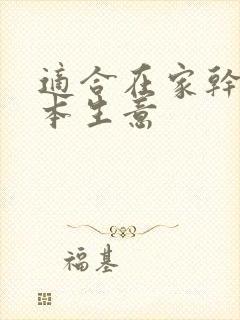 適合在家幹
本生意
福基